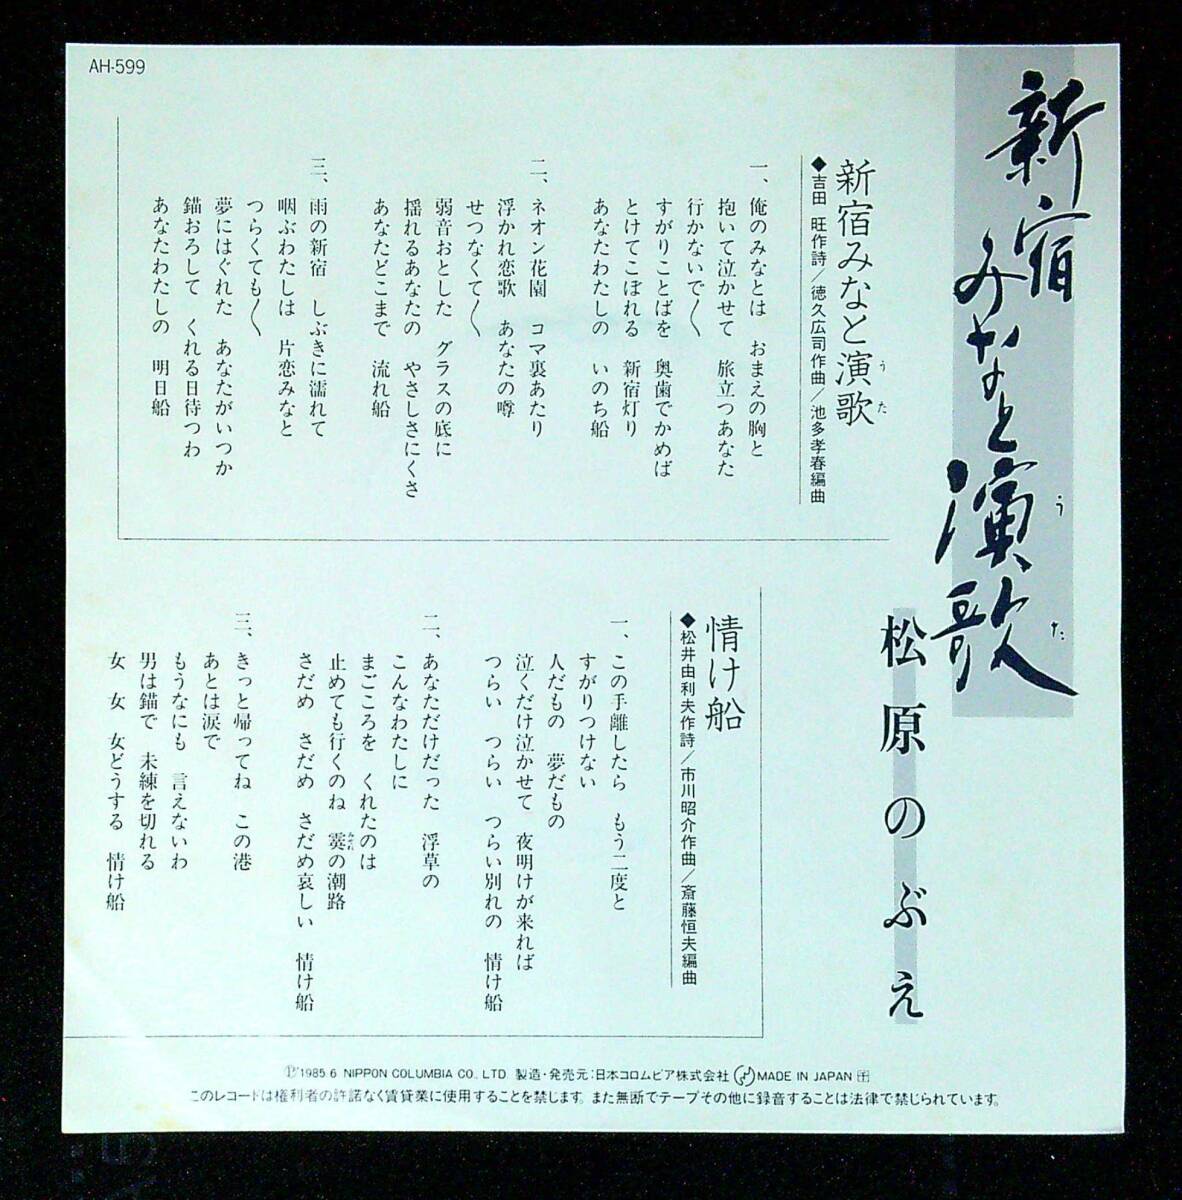 AH-599
新宿みなと演歌
うた
松原のぶえ
新宿みなと演歌
うた
◆吉田 旺作詩/徳久広司作曲/池多孝春編曲
一、俺のみなとは おまえの胸と
抱いて泣かせて 旅立つあなた
行かないで〱
すがりことばを 奥歯でかめば
とけてこぼれる 新宿灯り
あなたわたしの いのち船
二、ネオン花園 コマ裏あたり
浮かれ恋歌 あなたの噂
せつなくて〱
弱音おとした グラスの底に
揺れるあなたの やさしさにくさ
あなたどこまで 流れ船
三、雨の新宿 しぶきに濡れて
咽ぶわたしは 片恋みなと
つらくても〱
夢にはぐれた あなたがいつか
錨おろして くれる日待つわ
あなたわたしの 明日船
情け船
◆松井由利夫作詩/市川昭介作曲/斎藤恒夫編曲
一、この手離したら もう二度と
すがりつけない
人だもの 夢だもの
泣くだけ泣かせて 夜明けが来れば
つらい つらい つらい別れの 情け船
二、あなただけだった 浮草の
こんなわたしに
まごころを くれたのは
止めても行くのね 霙の潮路
みぞれ
さだめ さだめ さだめ哀しい 情け船
三、きっと帰ってね この港
あとは涙で
もうなにも 言えないわ
男は錨で 未練を切れる
女 女 女どうする 情け船
Ⓟ1985.6 NIPPON COLUMBIA CO., LTD. 製造・発売元:日本コロムビア株式会社 MADE IN JAPAN
このレコードは権利者の許諾なく賃貸業に使用することを禁じます。また無断でテープその他に録音することは法律で禁じられています。